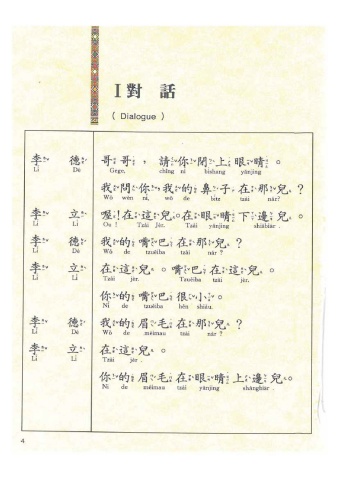 I 對話
( Dialogue )
李德 哥哥，請你閉上眼睛。
Lǐ Dé Gēge, chǐng nǐ bìshang yǎnjing
我問你，我的鼻子，在那兒？
Wǒ wèn nǐ, wǒ de bítz tzài nǎr?
李立 喔！在這兒。在眼睛下邊兒。
Lǐ Lì Ou ! Tzài jèr. Tzài yǎnjing shiàbiār.
李德 我的嘴巴在那兒？
Lǐ Dé Wǒ de tzuěiba tzài nǎr ?
李立 在這兒。嘴巴在這兒。
Lǐ Lì Tzài jèr. Tzuěiba tzài jèr.
你的嘴巴很小。
Nǐ de tzuěiba hěn shiǎu.
李德 我的眉毛在那兒？
Lǐ Dé Wǒ de méimau tzài nǎr ?
李立 在這兒。
Lǐ Lì Tzài jèr .
你的眉毛在眼睛上邊兒。
Nǐ de méimau tzài yǎnjing shàngbiar .
4